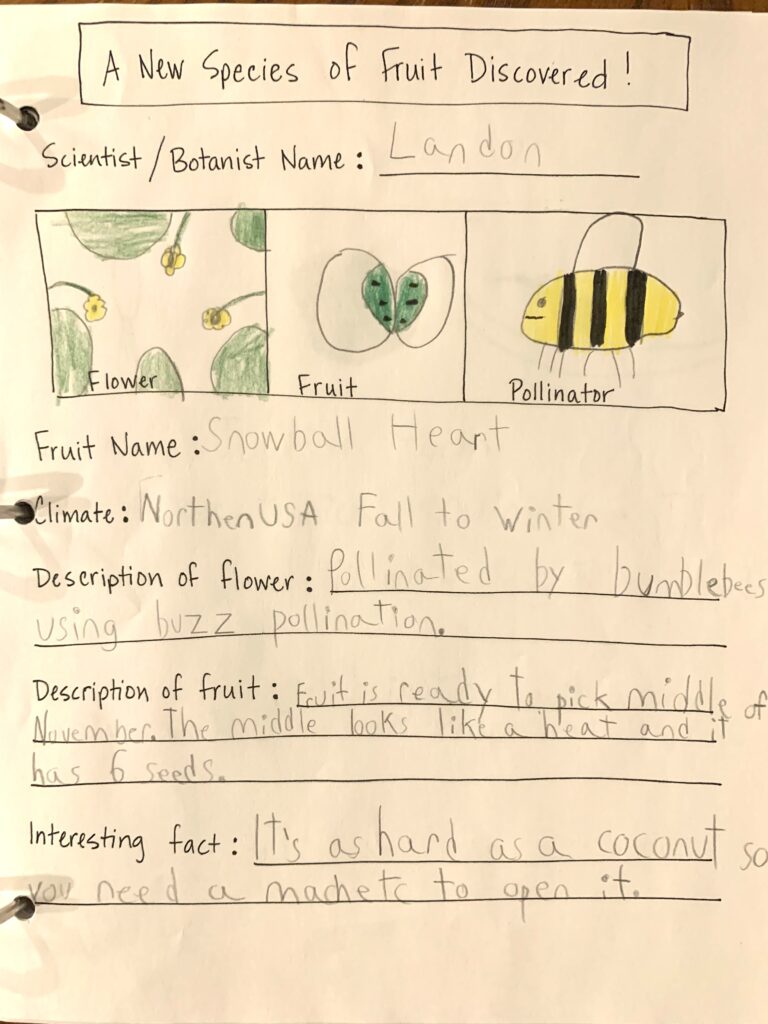 A New Species of Fruit Discovered!
Scientist/Botanist Name: Landon
Flower
Fruit
Pollinator
Fruit Name: Snowball Heart
Climate: Northen USA Fall to Winter
Description of flower: Pollinated by bumblebees
using buzz pollination.
Description of fruit: Fruit is ready to pick middle of
November. The middle looks like a heat and it
has 6 seeds.
Interesting fact: It's as hard as a coconut so
you need a machete to open it.